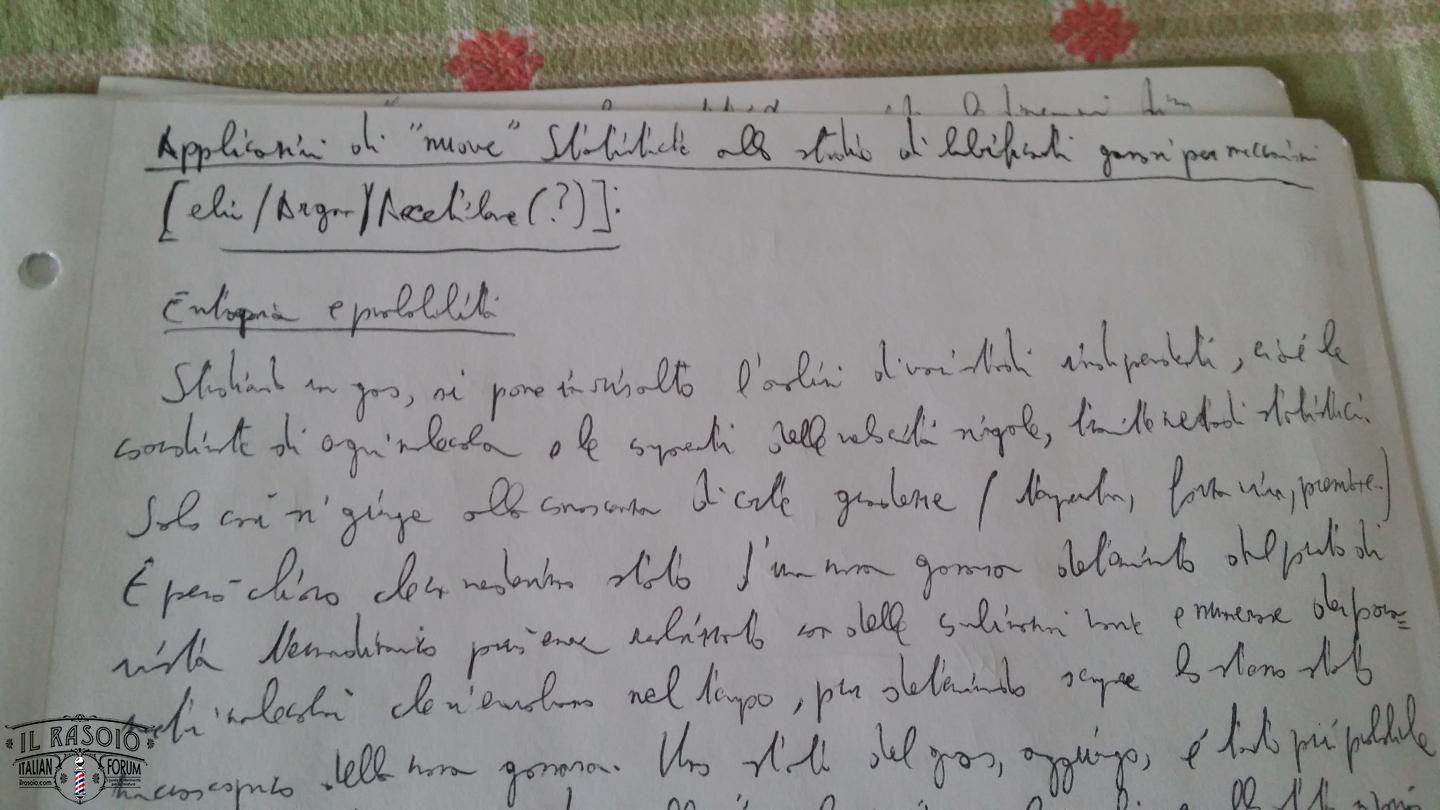 Applicazioni di "nuove" Statistiche allo studio di lubrificanti gassosi per meccanismi
[elio/Argon/Accetilene(?)]:
Entropia e probabilità
Studiando un gas, si pone in risalto l'ordine di vari stati indipendenti, cioè le
coordinate di ogni molecola e le componenti delle velocità singole, tramite metodi statistici.
Solo così si giunge alla conoscenza di certe grandezze (temperatura, forza viva, pressione..)
È però chiaro che un medesimo stato d'una massa gassosa determinato dal punto di
vista termodinamico può essere realizzato con delle combinazioni tante e numerose
molecolari che si evolvono nel tempo, pur determinando sempre lo stesso stato
macroscopico della massa gassosa. Uno stato del gas, aggiungo, è tanto più probabile
IL RASOIO
ITALIAN FORUM
ilrasoio.com